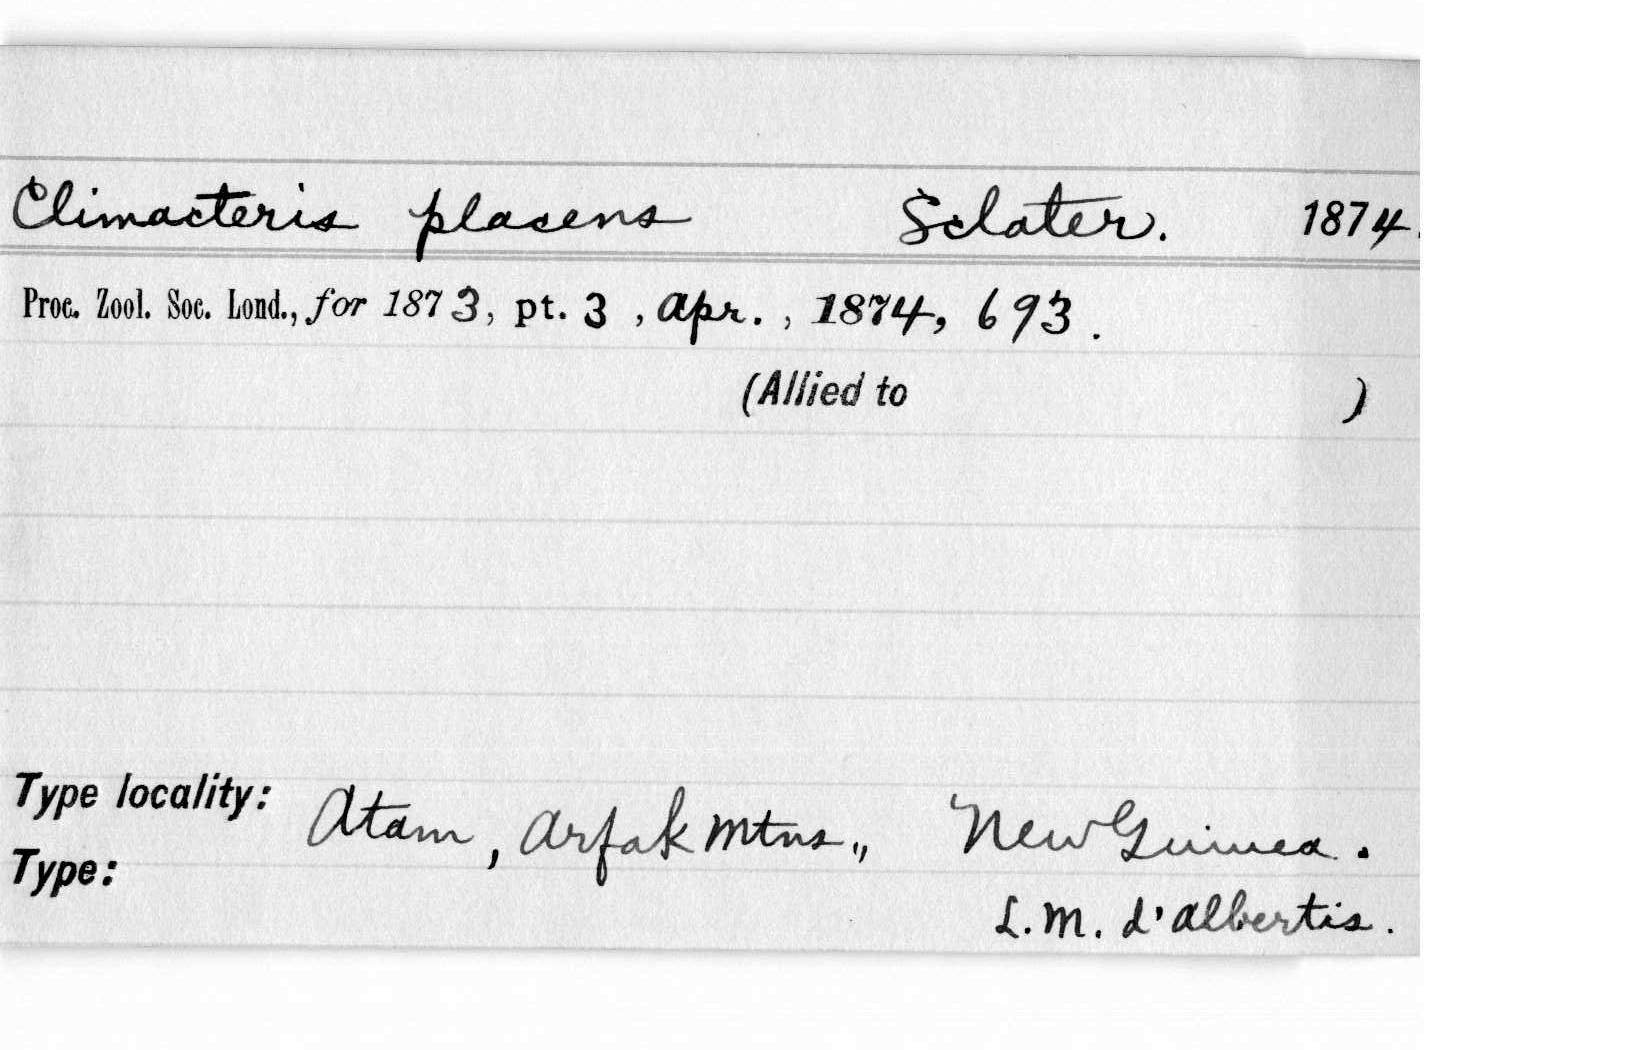 Climacteris placens Sclater. 1874.
Proc. Zool. Soc. Lond., for 1873, pt. 3, Apr., 1874, 693.
(Allied to )
Type locality: Atam, Arfak Mtns., New Guinea.
Type:
L. M. d'Albertis.